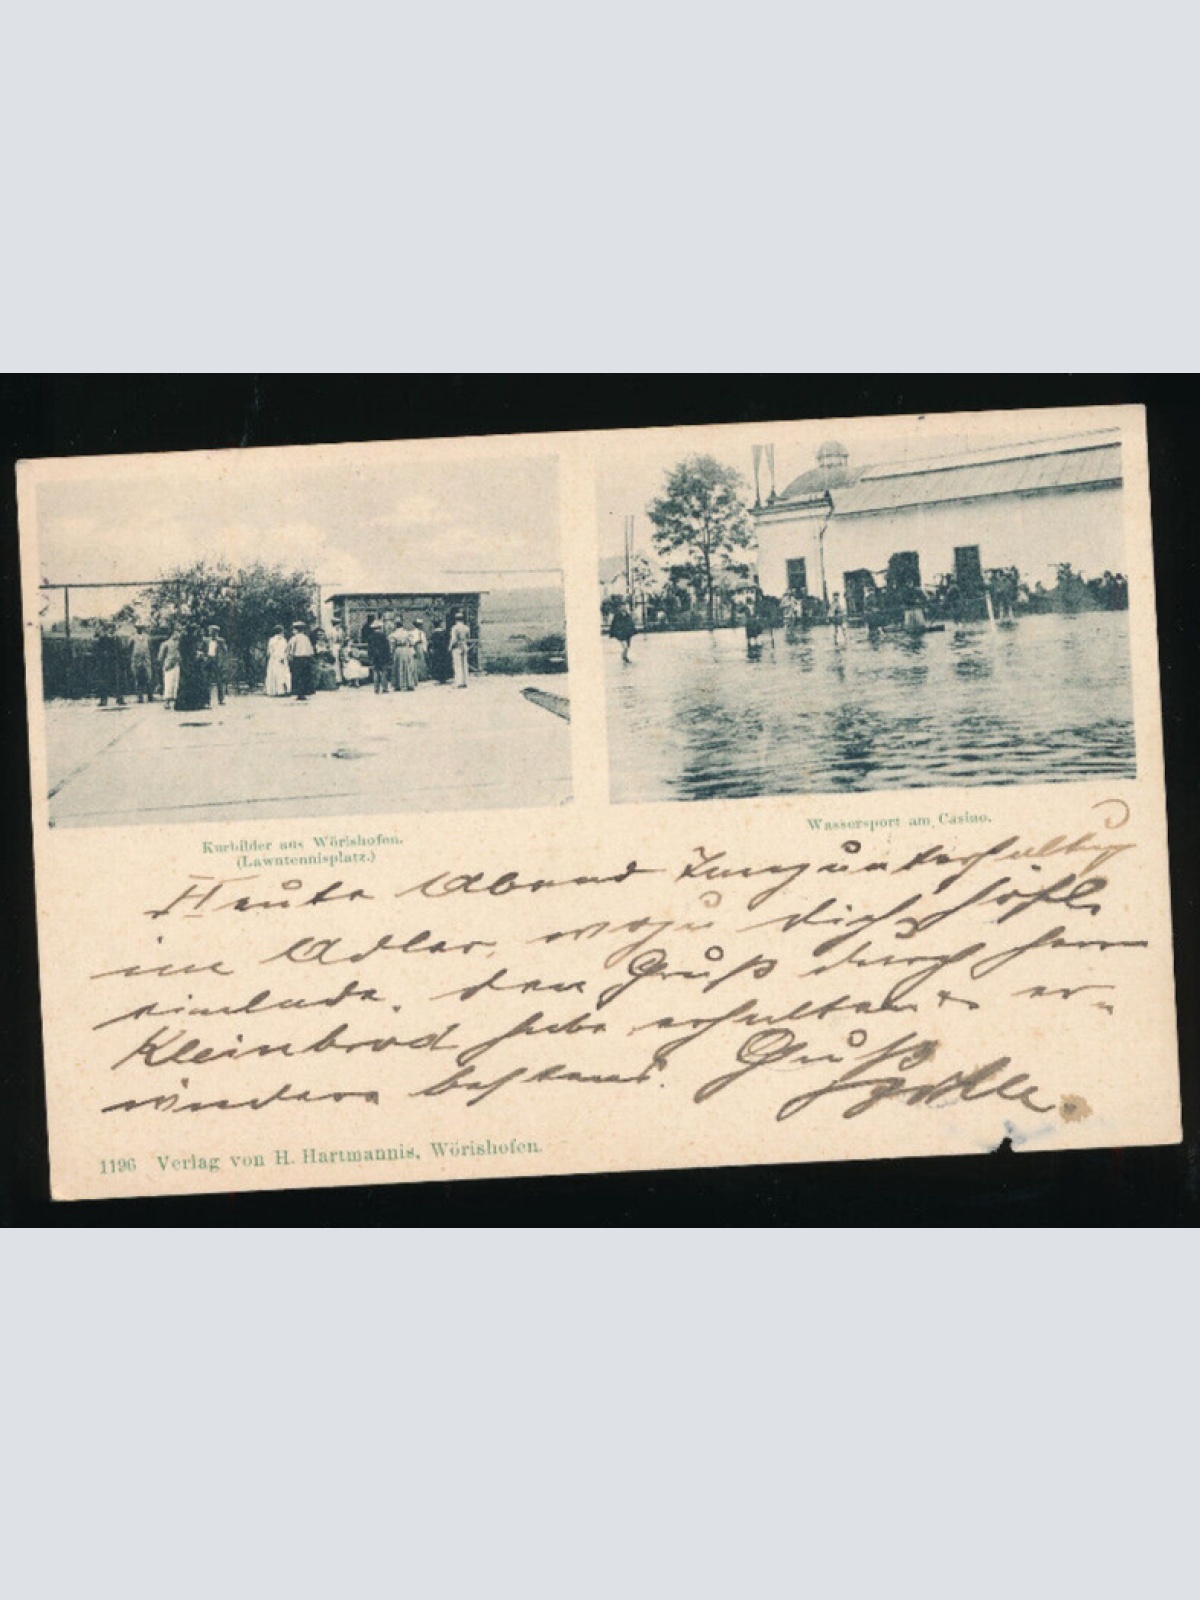 Kurbilder aus Wörishofen.
(Lawntennisplatz.)
Wassersport am Casino.
Heute Abend Tanzunterhaltung
im Adler, wozu dich höfl.
einlade. Den Gruß durch Herrn
Kleinbrod habe erhalten u. er-
widere bestens. Gruß
1196 Verlag von H. Hartmannis, Wörishofen.